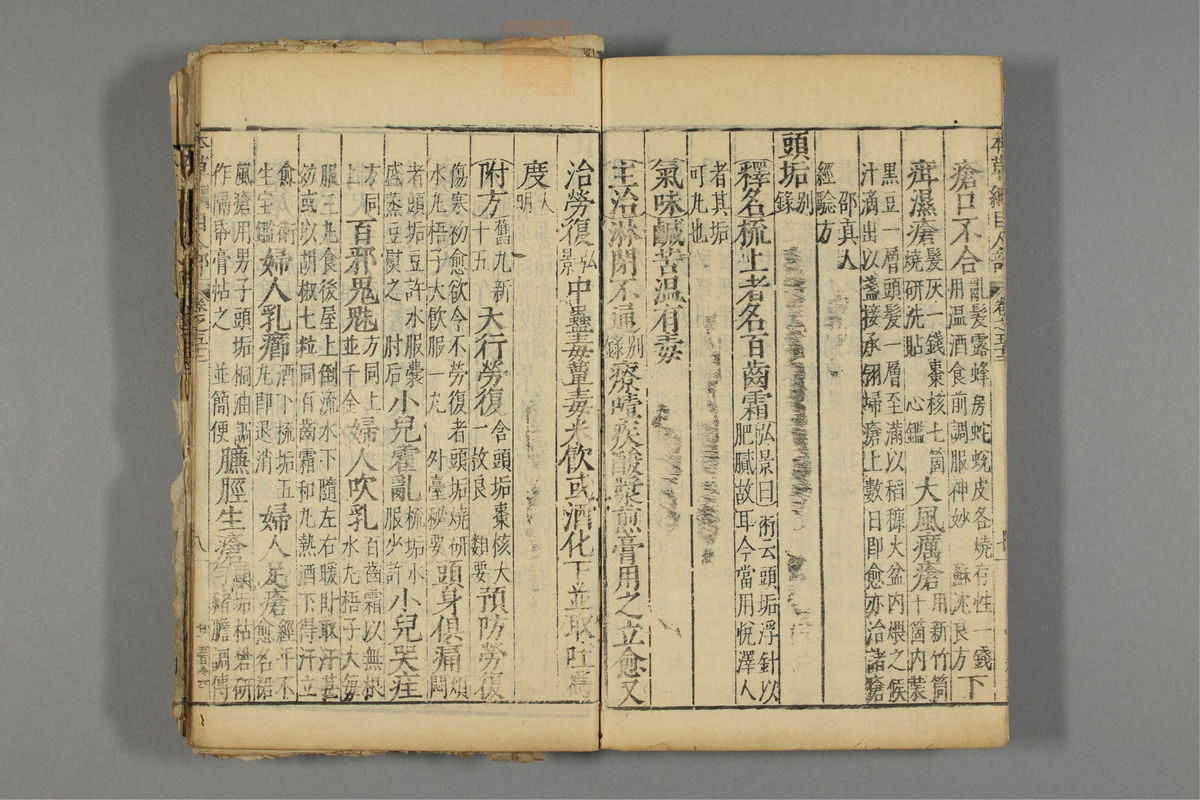 瘡口不合亂髮露蜂房蛇蛻皮各燒存性一錢
用溫酒食前調服神妙 蘇沈良方下
疳濕瘡髮灰一錢棗核七箇
燒研洗貼 心鑑大風癘瘡用新竹筒
十箇內裝
黑豆一層頭髮一層至滿以稻糠火盆內煨之候
汁滴出以盞接承翎掃瘡上數日即愈亦治諸瘡
邵真人
經驗方
頭垢別
錄
釋名梳上者名百齒霜弘景曰術云頭垢浮針以
肥膩故耳今當用悅澤人
者其垢
可丸也
氣味鹹苦溫有毒
主治淋閉不通別
錄療噎疾酸漿煎膏用之立愈又
治勞復弘
景中蠱毒蕈毒米飲或酒化下並取吐為
度大
明
附方舊九新
十五天行勞復含頭垢棗核大
一枚良 類要預防勞復
傷寒初愈欲令不勞復者頭垢燒研
水丸梧子大飲服一丸 外臺秘要頭身俱痛煩
悶
者頭垢豆許水服囊
盛蒸豆熨之 肘后小兒霍亂梳垢水
服少許小兒哭疰
方同
上百邪鬼魅方同上
並千金婦人吹乳百齒霜以無根
水丸梧子大每
服三丸食後屋上倒流水下隨左右暖臥取汗甚
効或以胡椒七粒同百齒霜和丸熱酒下得汗立
愈 衛
生宝鑑婦人乳癤酒下梳垢五
丸即退消婦人足瘡經年不
愈名裙
風瘡用男子頭垢桐油調
作隔帋膏帖之 並簡便臁脛生瘡
猪膽調傅
本草綱目人部 卷之五十二